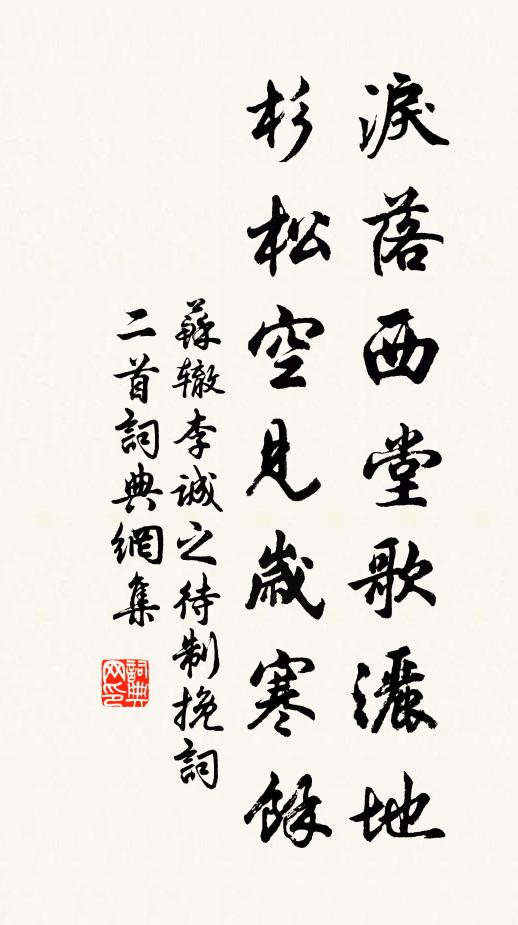 淚落西堂歌灑地
杉松空見歲寒餘
蘇轍李誠之待制挽詞
二首詞典網集
詞典网印